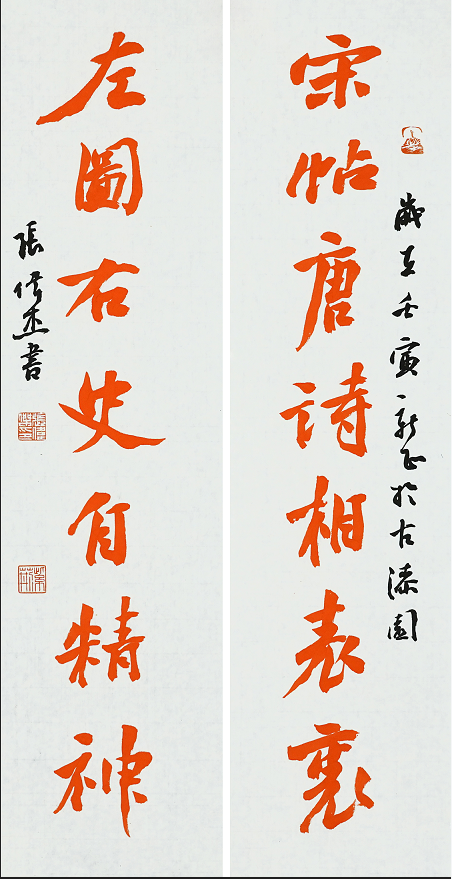 歲在壬寅新正於古漆園
宋帖唐诗相表裏
左圖右史自精神
張修杰書